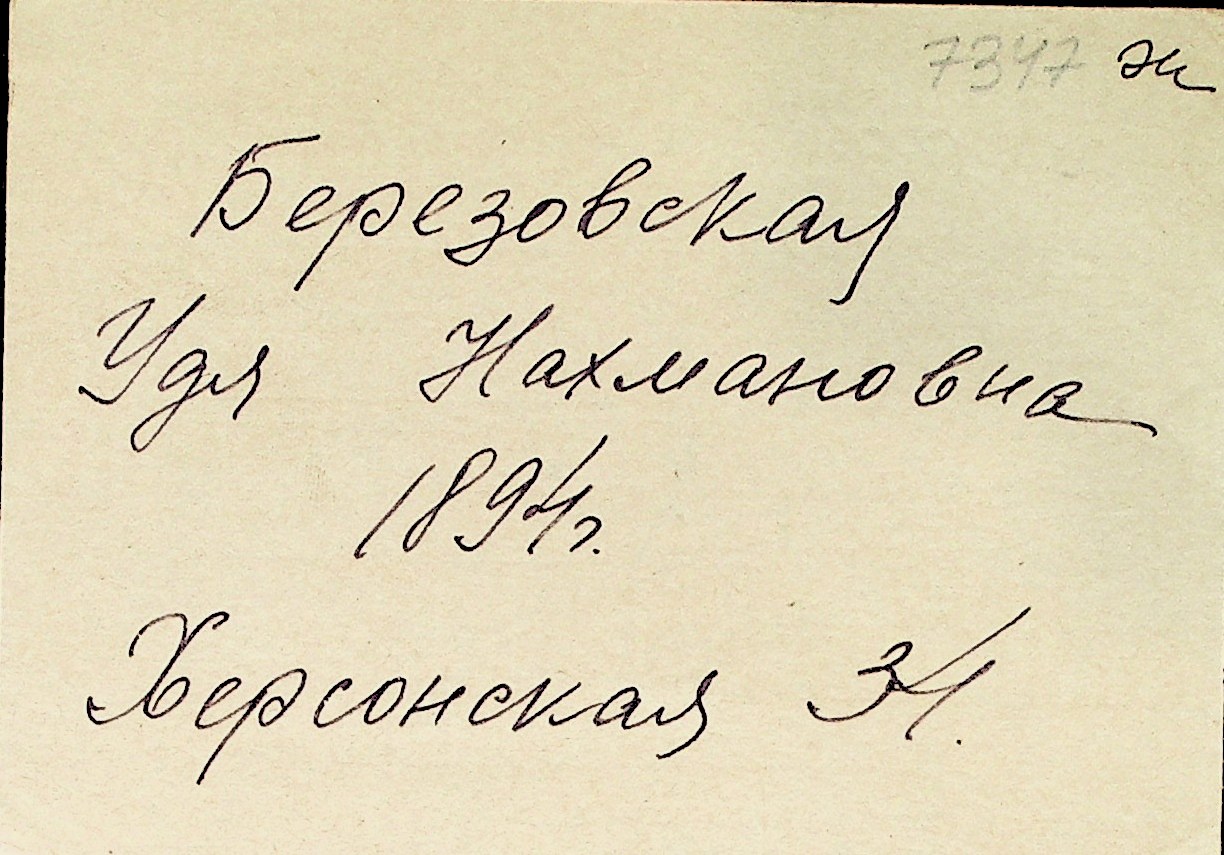 7347 ж
Березовская
Удя Нахмановна
1894г.
Херсонская 34.